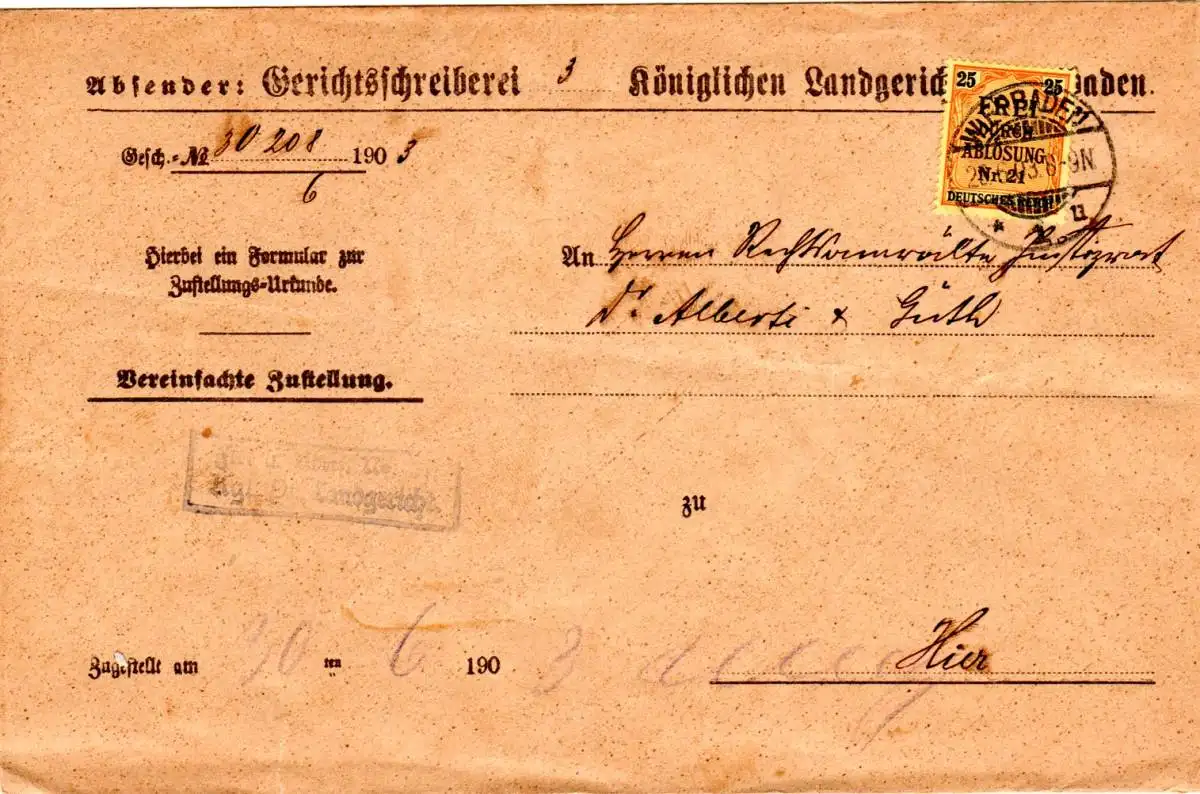 Absender: Gerichtsschreiberei 3 Königlichen Landgeric aden.
25 25
FREI DURCH
ABLÖSUNG
Nr. 21
DEUTSCHES REICH
WIESBADEN
03. 6-9N.
Gesch.-№ 30 208 1903
6
Hierbei ein Formular zur
Zustellungs-Urkunde.
Vereinfachte Zustellung.
An Herren Rechtsanwälte Justizrat
Dr. Alberti & Güth
Landgericht.
zu
Hier
Zugestellt am 30 ten 6 1903